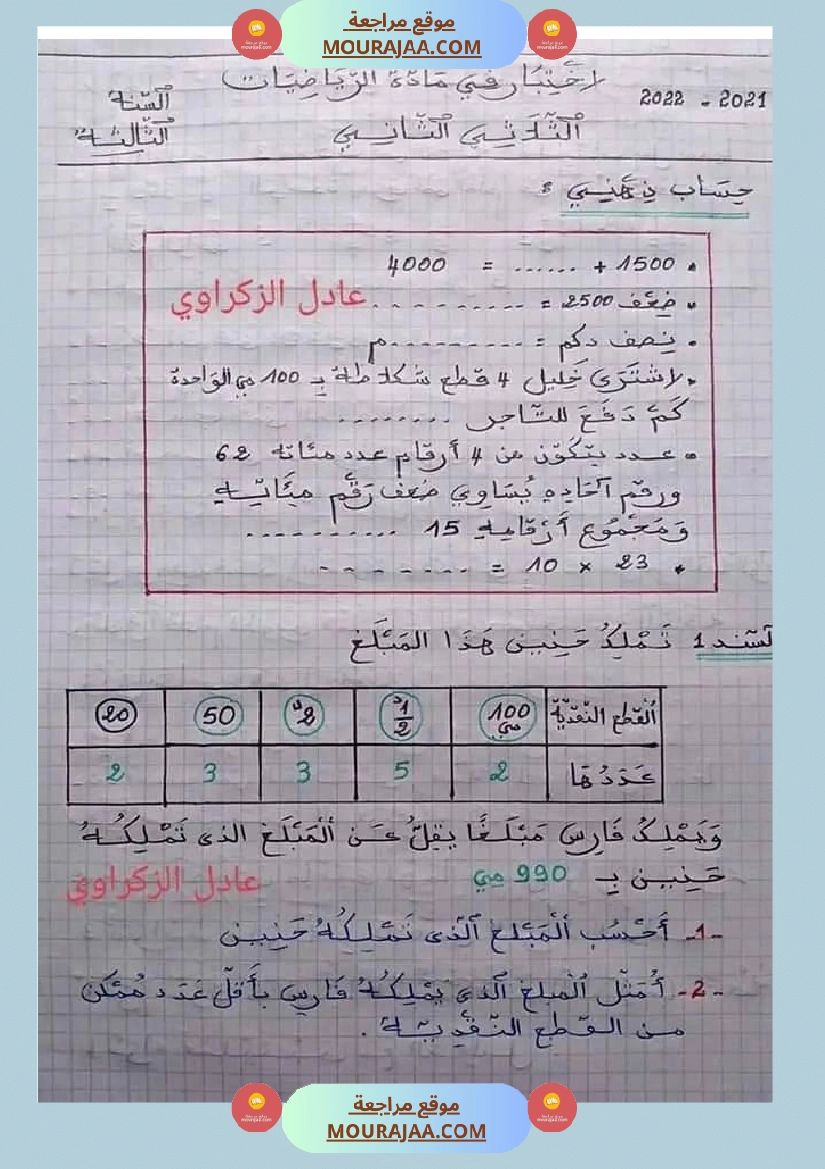 موقع مراجعة
MOURAJAA.COM
اختبار في مادة الرياضيات
2022 - 2021
السنة
الثالثة
الثلاثي الثاني
حساب ذهني :
1500 + ...... = 4000
ضعف 2500 = ..........
عادل الزكراوي
نصف دكم = ..........م
اشترى خليل 4 قطع شكلاطة بـ 100 مي الواحدة
كم دفع للتاجر ........
عدد يتكون من 4 أرقام عدد مئاته 62
ورقم آحاده يساوي ضعف رقم مئاته
ومجموع أرقامه 15 ..........
23 × 10 = ........
السند 1 تملك حنين هذا المبلغ
القطع النقدية 100 مي 1/2 د 2 د 50 20
عددها 2 5 3 3 2
ويملك فارس مبلغا يقل عن المبلغ الذي تملكه
حنين بـ 990 مي
عادل الزكراوي
-1- أحسب المبلغ الذي تملكه حنين
-2- أمثل المبلغ الذي يملكه فارس بأقل عدد ممكن
من القطع النقدية .
موقع مراجعة
MOURAJAA.COM